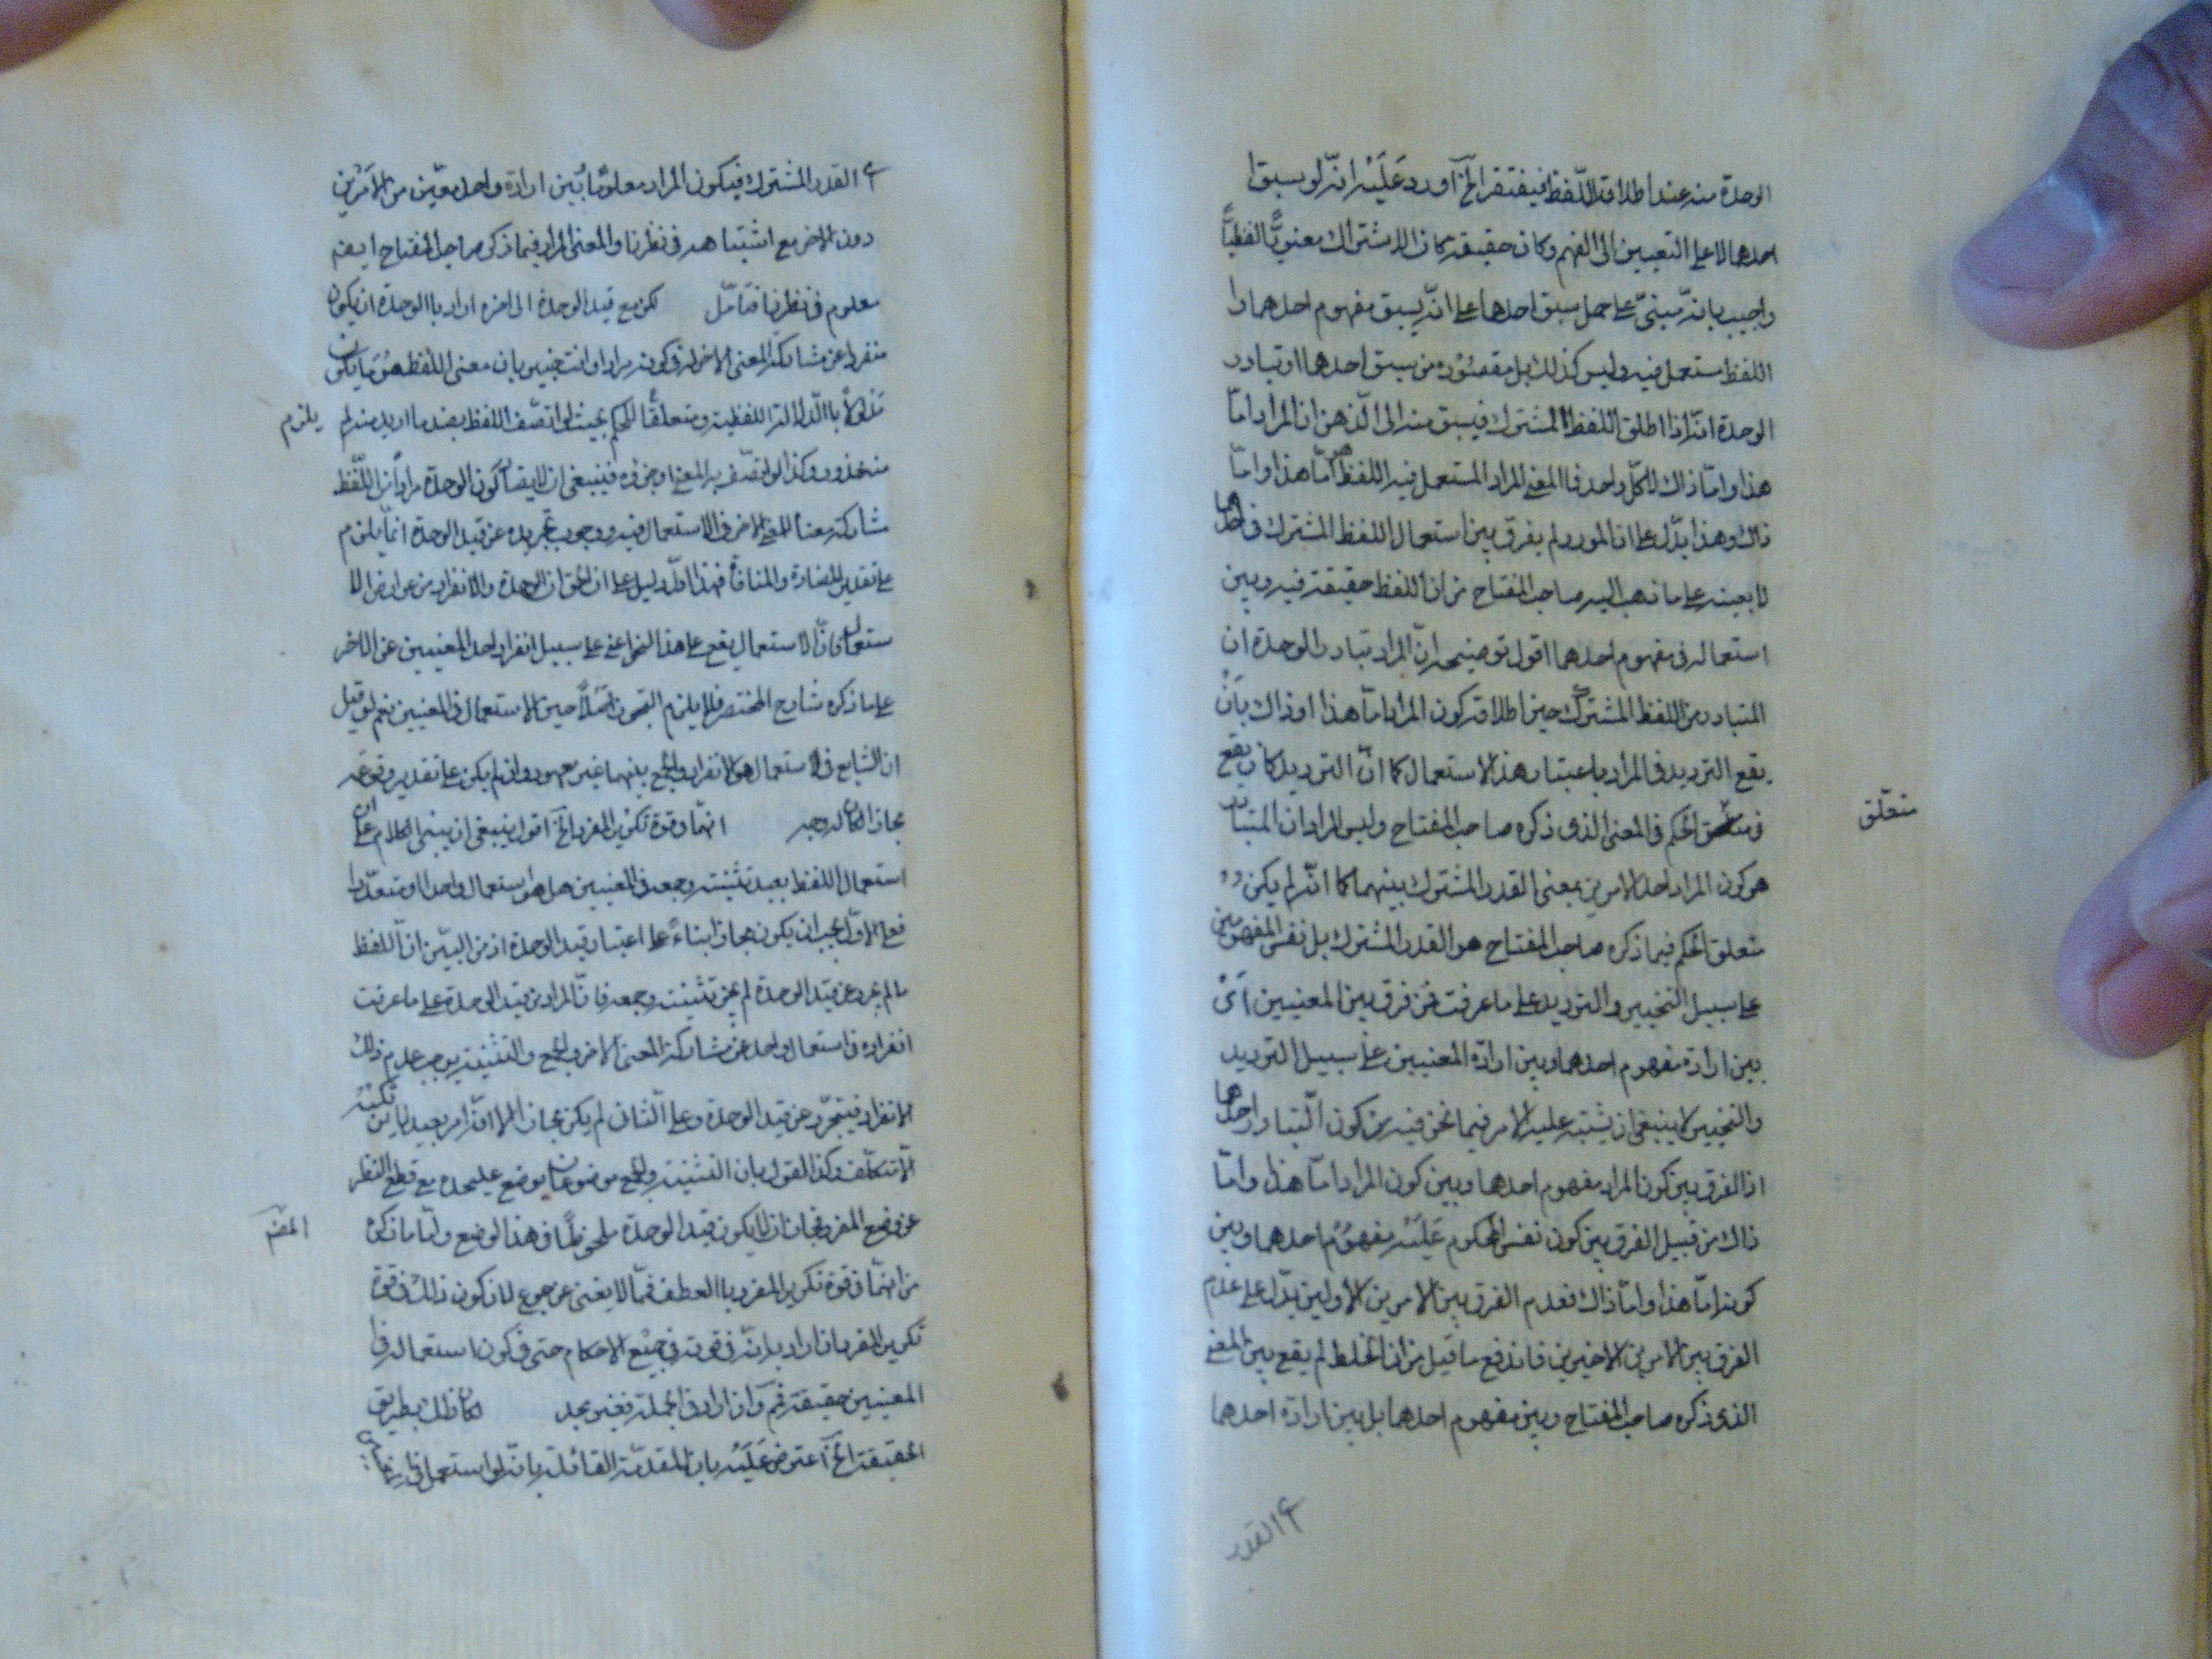 الوحدة منه عند اطلاق اللفظ فيفتقر الخ آورد عَلَيْه انّه لو سبق
احدهما لا على التعيين الى الفهم وكان حقيقة كان الاشتراك معنويًّا لفظيًّا
واجيب بانّه مبنىّ على حمل سبق احدهما على انّه يسبق مفهوم احدهما وا
اللفظ مستعمل فيه وليس كذلك بل مقصُوْده من سبق احدهما او تبادر
الوحدة انّه اذا اطلق اللفظ المشترك فيسبق منه الى الذّهن ان المراد امّا
هذا وامّا ذاك لا كلّ واحد فالمعنى المراد المستعمل فيه اللفظ امّا هذا وامّا
ذاك وهذا يدّل على ان المورد لم يفرق بين استعمال اللفظ المشترك فى احدهما
لا بعينه على ما ذهب اليه صاحب المفتاح من ان اللفظ حقيقة فيه وبين
استعماله فى مفهوم احدهما اقول توضيحه انّ المراد بتبادر الوحدة ان
المتبادر من اللفظ المشترك حين اطلاقه كون المراد امّا هذا او ذاك بأنْ
يقع الترديد فى المراد باعتبار هذا الاستعمال كما انّ الترديد كان يقع
فى متعلق الحكم فى المعنى الذى ذكره صاحب المفتاح وليس المراد ان المتبادر
متعلّق
هو كون المراد احد الامرين بمعنى القدر المشترك بينهما كما انّه لم يكن
متعلق الحكم فيما ذكره صاحب المفتاح هو القدر المشترك بل نفس المفهومين
على سبيل التخيير والترديد على ما عرفت فمن فرق بين المعنيين آىْ
بين ارادة مفهوم احدهما وبين ارادة المعنيين على سبيل الترديد
والتخيير لا ينبغى ان يشتبه عليه الامر فيما نحن فيه من كون التبادر احدهما
اذ الفرق بين كون المراد مفهوم احدهما وبين كون المراد امّا هذا وامّا
ذاك من قبيل الفرق بين كون نفس المحكوم عَلَيْه مفهوُم احدهما وبين
كونه امّا هذا وامّا ذاك فعدم الفرق بين الامرين الأولين يدّل على عدم
الفرق بين الامرين الاخيرين فاندفع ما قيل من ان الخلط لم يقع بين المعنى
الذى ذكره صاحب المفتاح وبين مفهوم احدهما بل بين ارادة احدهما
القدر
القدر المشترك فيكون المراد معلومًا بُيّن ارادة واحد معيّن من الامَرْين
دون الاخر مع اشتباهه فى نظرنا والمعنى المراد فيما ذكره صاحب المفتاح ايضا
معلوم فى نظرنا فتأمّل لكن مع قيد الوحدة الى اخره اراد بالوحدة ان يكون
منفردا عن مشاركة المعنى الاخر له فى كونه مرادا وانت خبير بان معنى اللفظ هوُ ما يكون
مدلولاً بالدّلالة اللفظية ومتعلقًا للحكم بحيث لو اتصّف اللفظ بضد ما اريد منه لم يلزم
محذور وكذا لو اتصّف به المعنى او جزؤه فينبغى ان لا يضاد كون الوحدة مراداً من اللّفظ
مشاركة معناه للمعنى الاخر فى الاستعمال فيه ووجوب تجريده عن قيد الوحدة انمّا يلزم
على تقدير المضادة والمنافاة فهذا ادّل دليل على ان الحق ان الوحدة والانفراد من عوارض الا
ستعمال فانّ الاستعمال يقع على هذا النحو اعنى على سبيل انفراد احد المعنيين عن الاخر
على ما ذكره شارح المختصر فلا يلزم التجوز اصْلاً حين الاستعمال فى المعنيين نعم لو قيل
ان الشايع فى الاستعمال هو الانفراد والجمع بينهما غير معهود وان لم يكن على تقدير وقوعه
مجازا لكان له وجه انهّما فى قوة تكرير المفرد الخ اقول ينبغى ان يبنى الكلام على ان
استعمال اللفظ بعيد تثنيته وجمعه فى المعنيين هل هو استعمال واحد او متعدّد
فعلى الاوّل يجب ان يكون مجازا بناءً على اعتبار قيد الوحدة اذ من البيّن انّ اللفظ
ما لم يجرد عن قيد الوحدة لم يجز تثنيته وجمعه فانّ المراد من قيد الوحدة على ما عرفت
انفراده فى استعمال واحد عن مشاركة المعنى الاخر والجمع والتثنية يوجب عدم ذلك
الانفراد فيتجرّد عن قيد الوحدة وعلى الثانى لم يكن مجازا الا انّه امر بعيد
الّا بتكلّف وكذا القول بان التثنية والجمع موضوعان بوضع عليحده مع قطع النظر
عن وضع المفرد فجاز ان لا يكون قيد الوحدة ملحوظًا فى هذا الوضع وامّا ما ذكره المصّنف
من انهّما فى قوة تكرير المفرد بالعطف فممّا لا يغنى عن جوع لان كون ذلك فى قوة
تكرير المفرد ان اراد به انّه فى قوته فى جَميْع الاحكام حتى فى كون استعماله فى
المعنيين حقيقة فمٓ وان اراد فى الجملة فغير مجد كان ذلك بطريق
الحقيقة الخ آعترض عَلَيْه بان المقدمّة القائلة بانّه لو استعمل فى